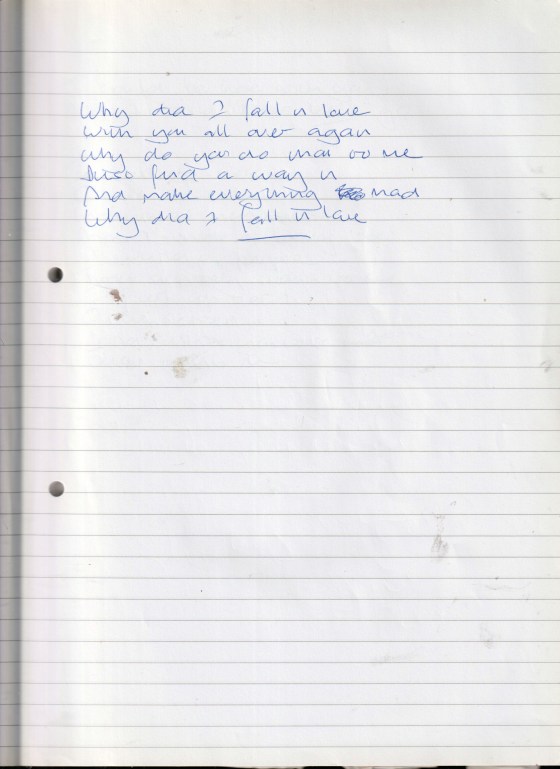 Why did I fall in love
With you all over again
Why do you do that to me
Just find a way in
And make everything mad
Why did I fall in love